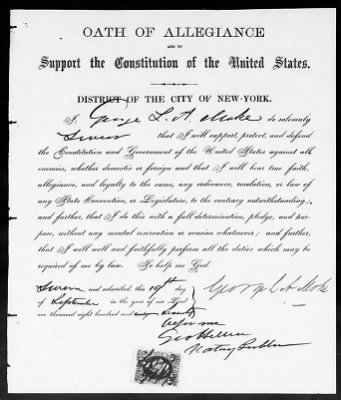 OATH OF ALLEGIANCE
AND TO
Support the Constitution of the United States.
DISTRICT OF THE CITY OF NEW-YORK.
I, George L. A. Moke do solemnly
Swear that I will support, protect, and defend
the Constitution and Government of the United States against all
enemies, whether domestic or foreign and that I will bear true faith,
allegiance, and loyalty to the same, any ordinance, resolution, or law of
any State Convention, or Legislature, to the contrary notwithstanding;
and further, that I do this with a full determination, pledge, and pur-
pose, without any mental reservation or evasion whatsoever; and further,
that I will well and faithfully perform all the duties which may be
required of me by law. So help me God.
Sworn and subscribed this day
of September in the year of our Lord
one thousand eight hundred and seventy
George L A Moke
before me
Notary Public